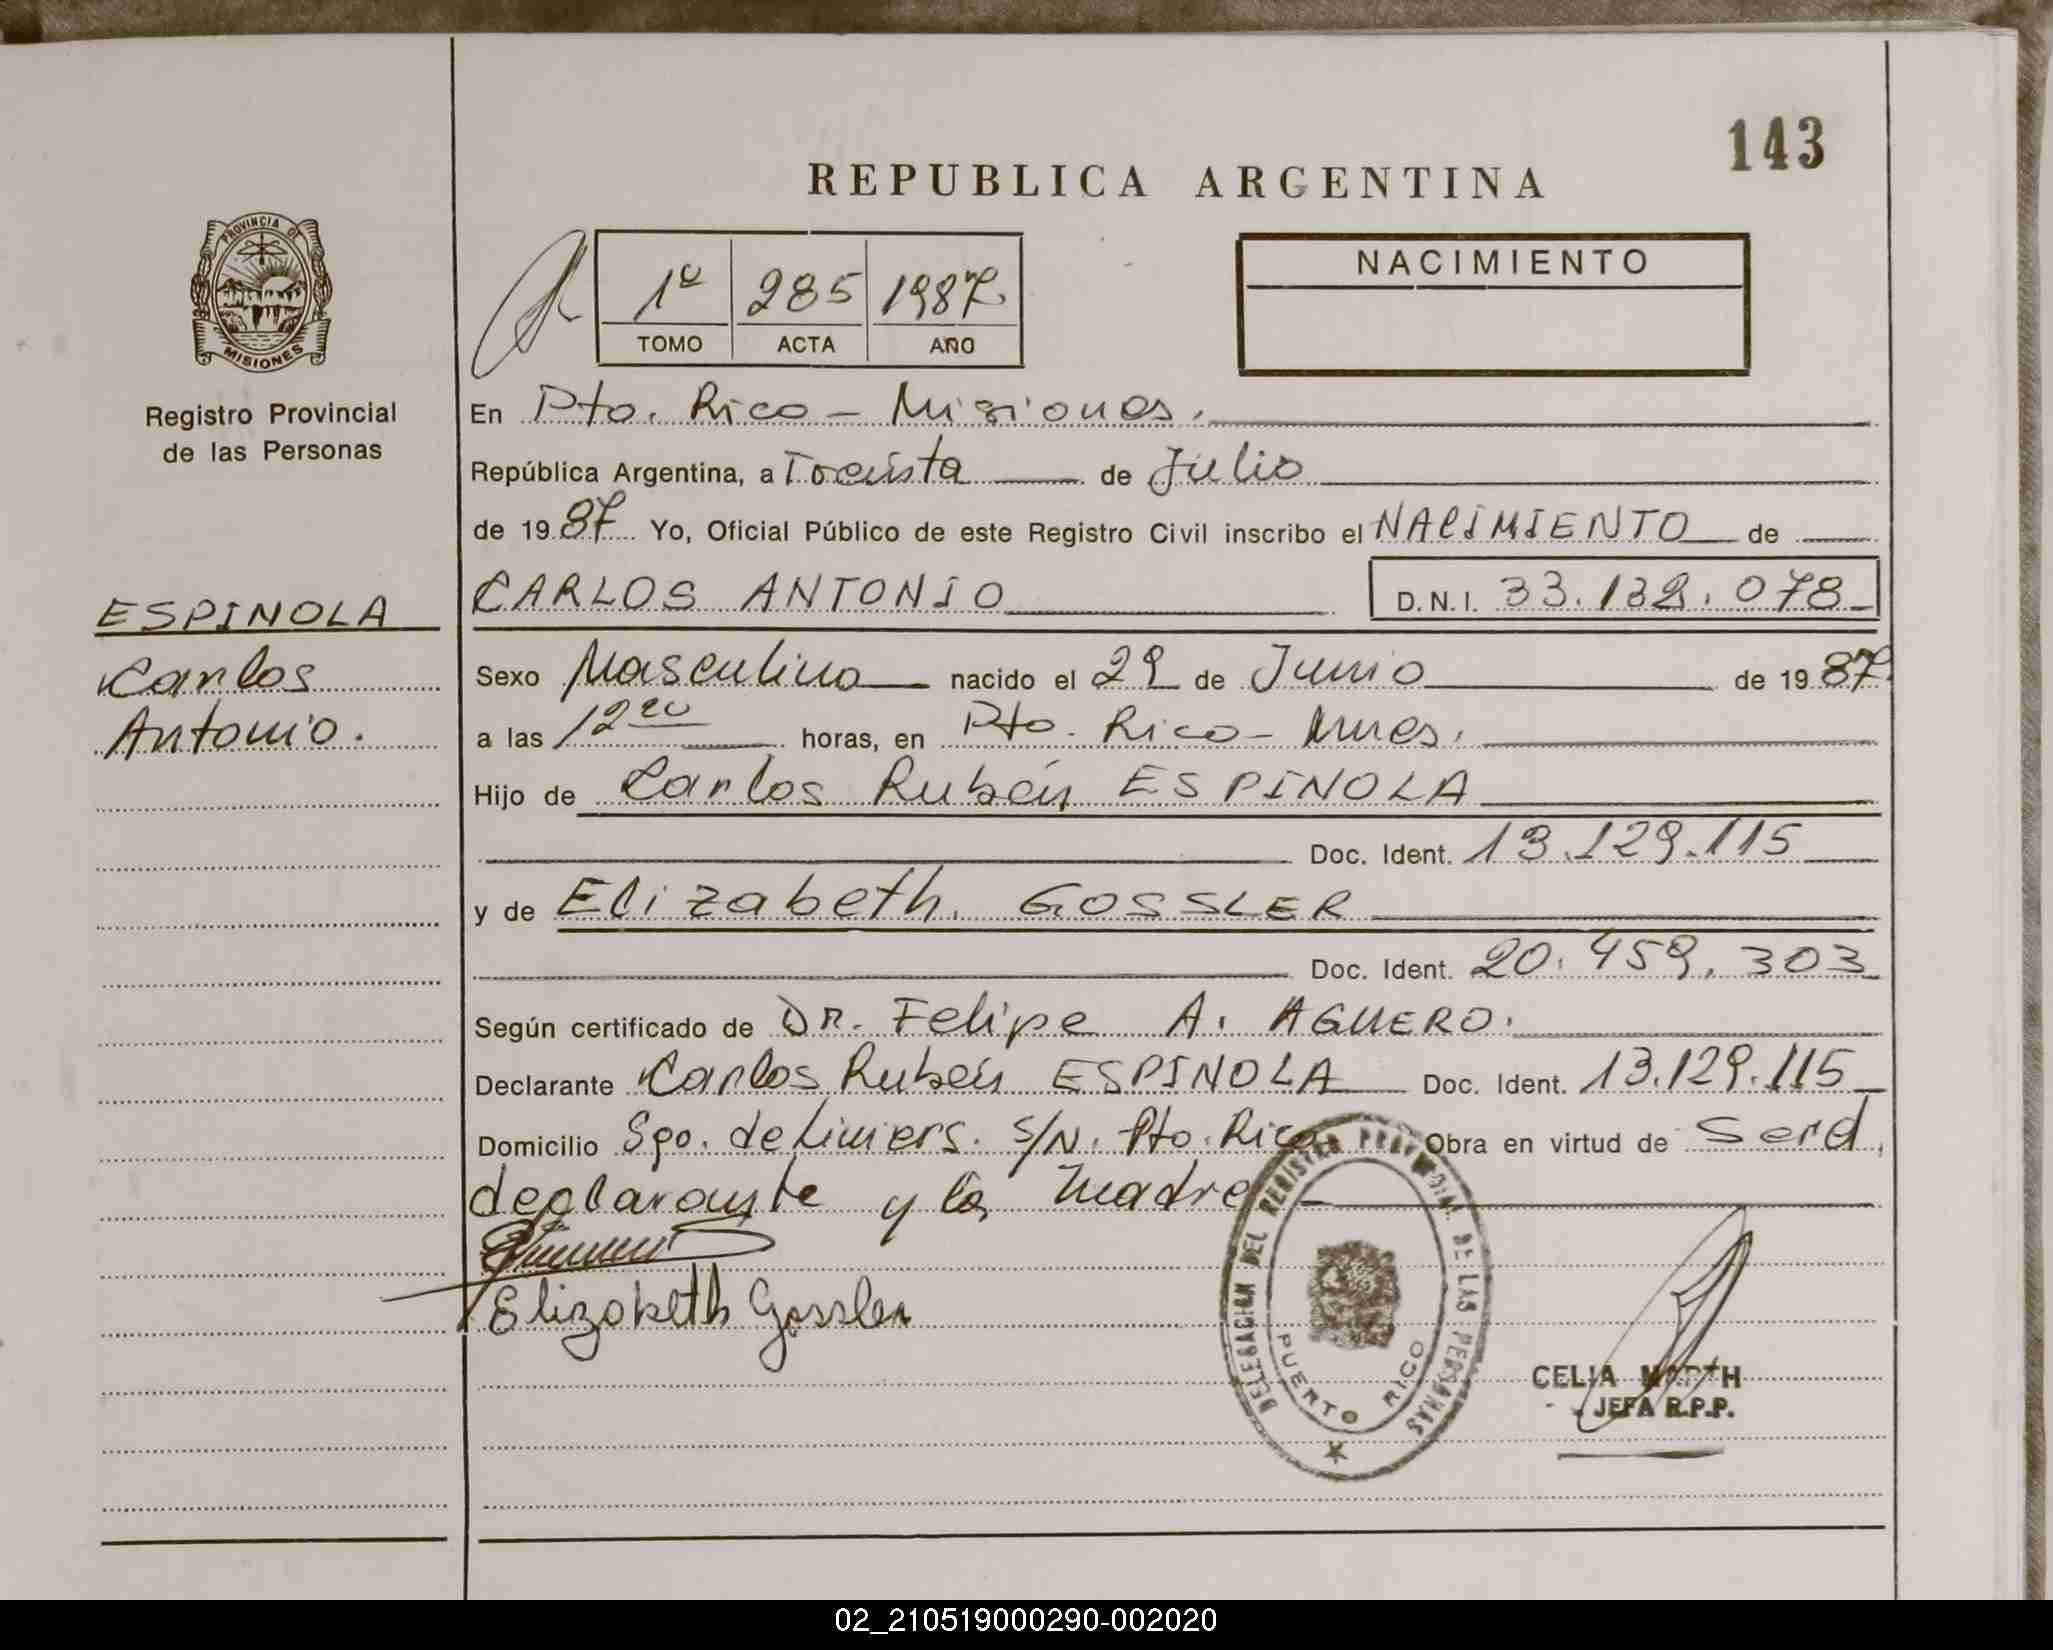 143
REPUBLICA ARGENTINA
PROVINCIA DE
MISIONES
Registro Provincial
de las Personas
1º 285 1987
TOMO ACTA AÑO
NACIMIENTO
En Pto. Rico - Misiones.
República Argentina, a Treinta de Julio
de 1987 Yo, Oficial Público de este Registro Civil inscribo el NACIMIENTO de
ESPINOLA
Carlos
Antonio.
CARLOS ANTONIO D.N.I. 33.132.078
Sexo Masculino nacido el 29 de Junio de 1987
a las 12 20 horas, en Pto. Rico - Mnes.
Hijo de Carlos Rubén ESPINOLA
Doc. Ident. 13.129.115
y de Elizabeth GOSSLER
Doc. Ident. 20.459.303
Según certificado de Dr. Felipe A. AGUERO.
Declarante Carlos Rubén ESPINOLA Doc. Ident. 13.129.115
Domicilio Sgo. de Liniers. S/N. Pto. Rico Obra en virtud de Ser el
declarante y la Madre
Elizabeth Gossler
DELEGACION DEL REGISTRO PROVINCIAL DE LAS PERSONAS
PUERTO RICO
CELIA
JEFA R.P.P.
02_210519000290-002020